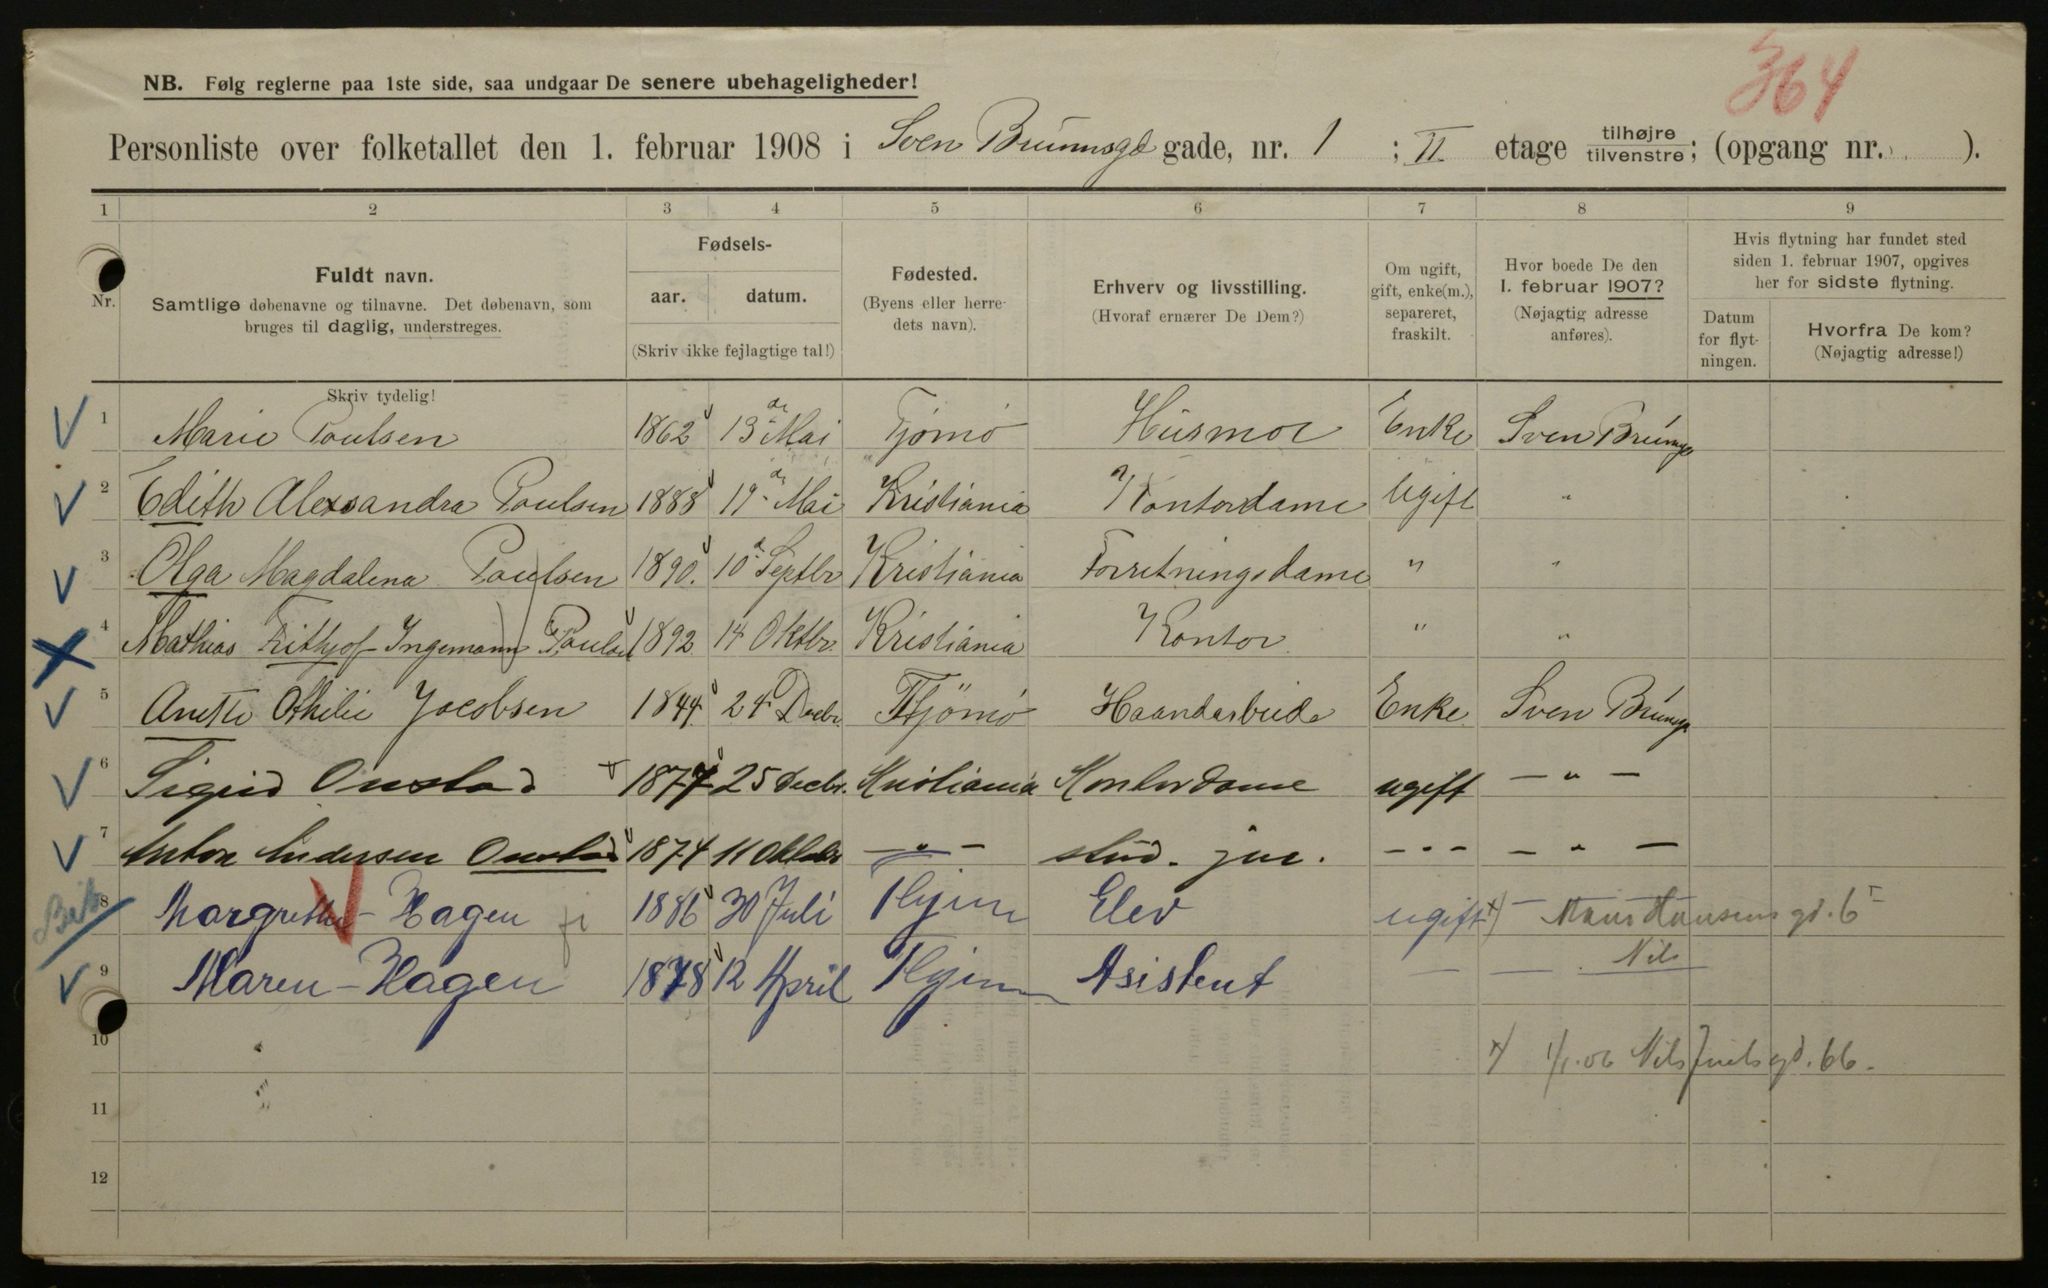 364
NB. Følg reglerne paa 1ste side, saa undgaar De senere ubehageligheder!
Personliste over folketallet den 1. februar 1908 i Sven Bruunsgd gade, nr. 1 ; II. etage tilhøjre tilvenstre; (opgang nr. ).
1 2 3 4 5 6 7 8 9
Nr.
Fuldt navn.
Samtlige døbenavne og tilnavne. Det døbenavn, som
bruges til daglig, understreges.
Fødsels-
aar. datum.
(Skriv ikke fejlagtige tal!)
Fødested.
(Byens eller herre-
dets navn).
Erhverv og livsstilling.
(Hvoraf ernærer De Dem?)
Om ugift,
gift, enke(m.),
separeret,
fraskilt.
Hvor boede De den
1. februar 1907?
(Nøjagtig adresse
anføres).
Hvis flytning har fundet sted
siden 1. februar 1907, opgives
her for sidste flytning.
Datum
for flyt-
ningen.
Hvorfra De kom?
(Nøjagtig adresse!)
Skriv tydelig!
1 Marie Poulsen 1862 13de Mai Tjømø Husmor Enke Sven Bruunsgd
2 Edith Alexsandra Poulsen 1888 19de Mai Kristiania Kontordame Ugift "
3 Olga Magdalena Poulsen 1890. 10d Septbr Kristiania Forretningsdame " "
4 Mathias Frithjof Ingemann Poulsen 1892 14 Oktbr. Kristiania Kontor " "
5 Anette Othilie Jacobsen 1844 24d Decbr. Tjömö Haandarbeide Enke Sven Bruunsgd
6 Sigrid Onstad 1877 25 Decbr. Kristiania Kontordame ugift — " —
7 Anton Andersen Onstad 1874 11 Oktober — " — stud. jur. — " — — " —
8 Margrethe Hagen 1886 30 Juli Elev ugift x)
9 Maren Hagen 1878 12 April Asistent — — Nils
10 x) 1/1.06 Nils Juels gd. 66.
11
12